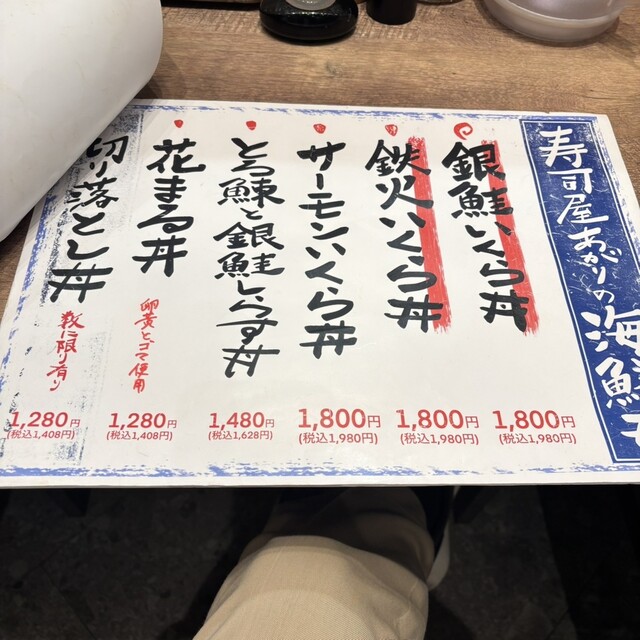 寿司屋あがりの海鮮
銀鮭いくら丼
1,800円
(税込1,980円)
鉄火いくら丼
1,800円
(税込1,980円)
サーモンいくら丼
1,800円
(税込1,980円)
とろ鰊と銀鮭しらす丼
1,480円
(税込1,628円)
花まる丼
卵黄とごま使用
1,280円
(税込1,408円)
切り落とし丼
数に限り有り
1,280円
(税込1,408円)